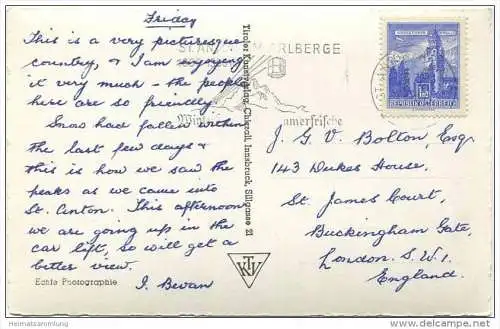 Friday
This is a very picturesque
country, & I am enjoying
it very much - the people
here are so friendly.
Snow had fallen within
the last few days &
this is how we saw the
peaks as we came into
St. Anton. This afternoon
we are going up in the
car lift, so will get a
better view.
I. Bevan
Echte Photographie
ST. ANTON AM ARLBERG
Winter
merfrische
Tiroler Kunstverlag Chizzali, Innsbruck, Sillgasse 21
KTV
REPUBLIK ÖSTERREICH
J. G. V. Bolton, Esq.
143 Dukes House,
St. James Court,
Buckingham Gate,
London. S.W.1.
England.
Heimatsammlung
www.heimatsammlung.de